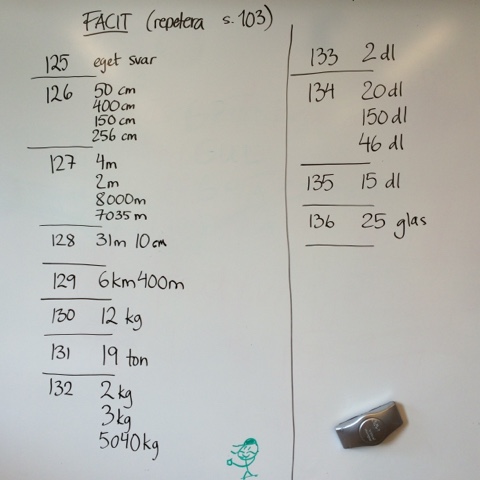 FACIT (repetera s. 103)
125 eget svar
126 50 cm
400 cm
150 cm
256 cm
127 4m
2m
8000m
7035 m
128 31m 10 cm
129 6km400m
130 12 kg
131 19 ton
132 2 kg
3kg
5040kg
133 2 dl
134 20 dl
150 dl
46 dl
135 15 dl
136 25 glas